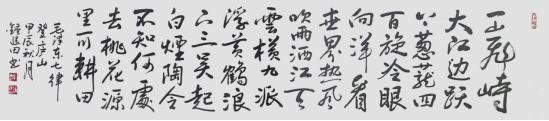 一山飛峙
大江边跃
上葱蘢四
百旋冷眼
向洋看
世界热风
吹雨洒江天
雲横九派
浮黄鹤浪
下三吴起
白煙陶令
不知何處
去桃花源
里可耕田
毛泽东七律
登庐山
甲辰秋月